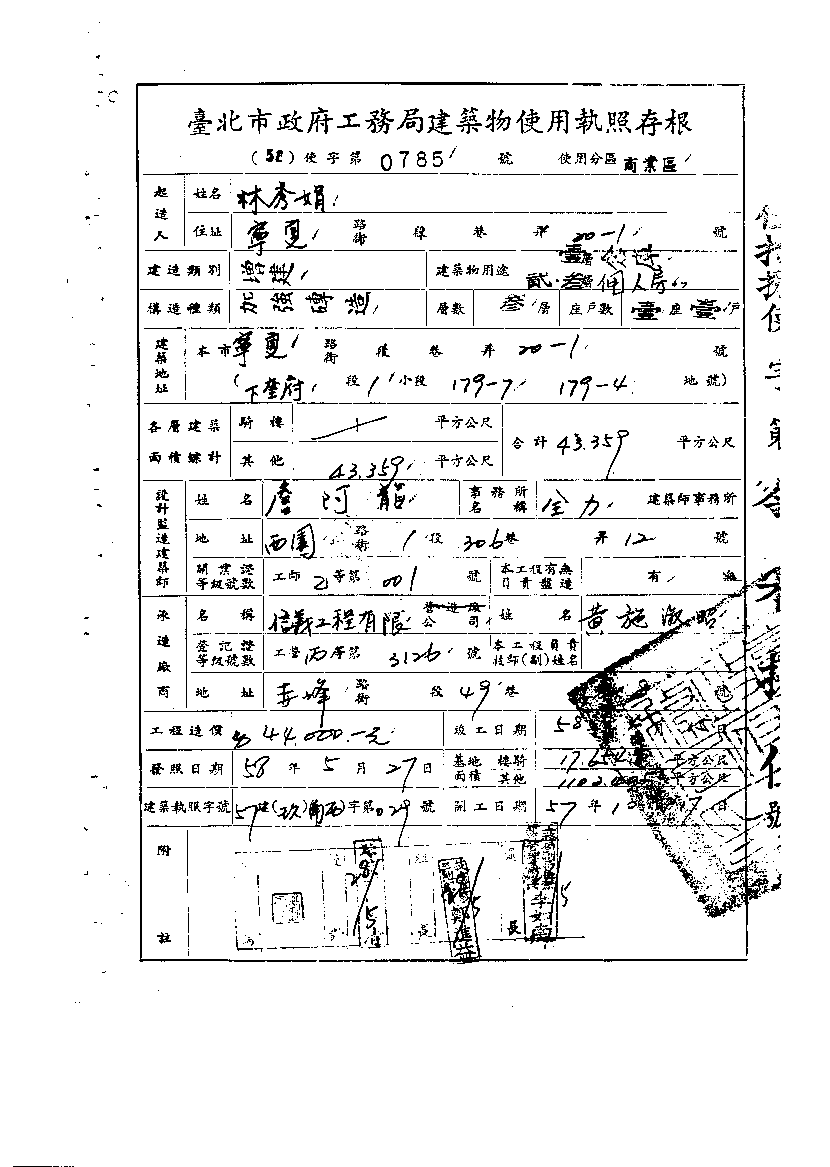 臺北市政府工務局建築物使用執照存根
(58)使字第0785號 使用分區 商業區
起造人 姓名 林秀娟
住址 寧夏 路街 段 巷 弄 20-1 號
建造類別 增建 建築物用途 壹層 貳.叁層個人房
構造種類 加強磚造 層數 叁層 座戶數 壹座壹戶
建築地址 本市寧夏 路街 段 巷 弄 20-1 號
(下奎府 段 1 小段 179-7 179-4 地號)
各層建築面積總計 騎樓 平方公尺 合計 43.359 平方公尺
其他 43.359 平方公尺
設計監造建築師 姓名 詹阿龍 事務所名稱 全力 建築師事務所
地址 西園 路街 1 段 306 巷 弄 12 號
開業證等級號數 工師 乙等第 001 號 本工程有無負責監造 有 無
承造廠商 名稱 信義工程有限 營造廠公司 姓名 黃施淑昭
登記證等級號數 工營丙等第 3126 號 本工程負責技師(副)姓名
地址 赤峰 路街 段 49 巷 號
工程造價 44,000.-元 竣工日期 58 月 日
發照日期 58 年 5 月 27 日 基地面積 騎樓 平方公尺
其他 平方公尺
建築執照字號 57建(玖)南丙字第029號 開工日期 57 年 日
附註